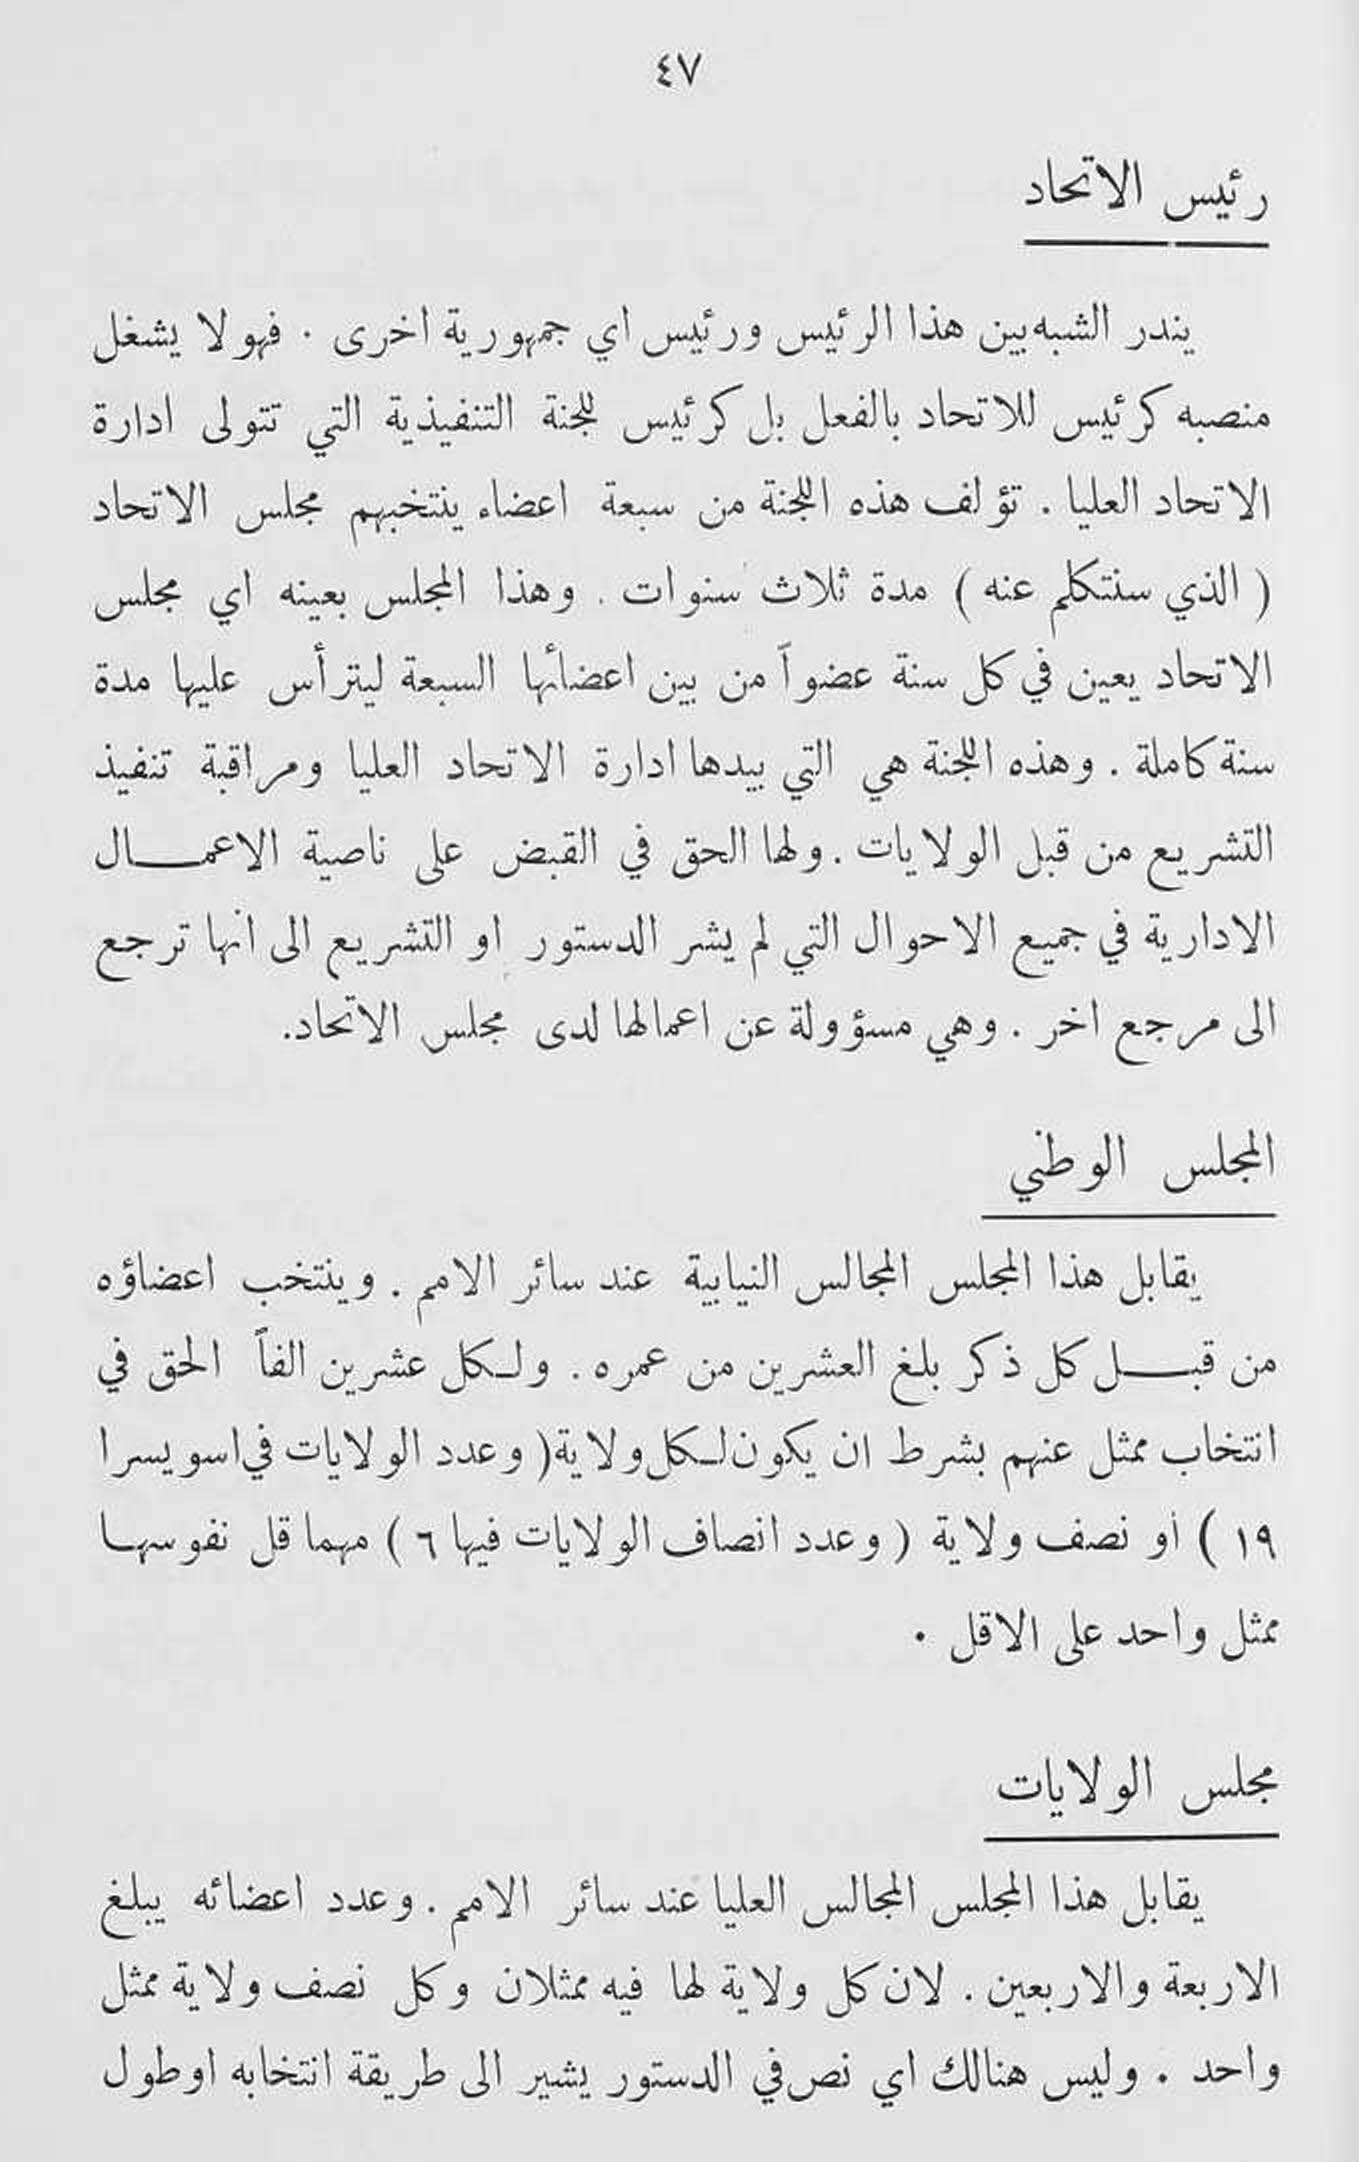 ٤٧
رئيس الاتحاد
يندر الشبه بين هذا الرئيس ورئيس اي جمهورية اخرى . فهو لا يشغل
منصبه كرئيس للاتحاد بالفعل بل كرئيس للجنة التنفيذية التي تتولى ادارة
الاتحاد العليا . تؤلف هذه اللجنة من سبعة اعضاء ينتخبهم مجلس الاتحاد
( الذي سنتكلم عنه ) مدة ثلاث سنوات . وهذا المجلس بعينه اي مجلس
الاتحاد يعين في كل سنة عضواً من بين اعضائها السبعة ليترأس عليها مدة
سنة كاملة . وهذه اللجنة هي التي بيدها ادارة الاتحاد العليا ومراقبة تنفيذ
التشريع من قبل الولايات . ولها الحق في القبض على ناصية الاعمـــال
الادارية في جميع الاحوال التي لم يشر الدستور او التشريع الى انها ترجع
الى مرجع اخر . وهي مسؤولة عن اعمالها لدى مجلس الاتحاد.
المجلس الوطني
يقابل هذا المجلس المجالس النيابية عند سائر الامم . وينتخب اعضاؤه
من قبـــل كل ذكر بلغ العشرين من عمره . ولـكل عشرين الفاً الحق في
انتخاب ممثل عنهم بشرط ان يكون لـكل ولاية ( وعدد الولايات في اسويسرا
١٩ ) او نصف ولاية ( وعدد انصاف الولايات فيها ٦ ) مهما قل نفوسهـا
ممثل واحد على الاقل .
مجلس الولايات
يقابل هذا المجلس المجالس العليا عند سائر الامم . وعدد اعضائه يبلغ
الاربعة والاربعين . لان كل ولاية لها فيه ممثلان وكل نصف ولاية ممثل
واحد . وليس هنالك اي نص في الدستور يشير الى طريقة انتخابه او طول